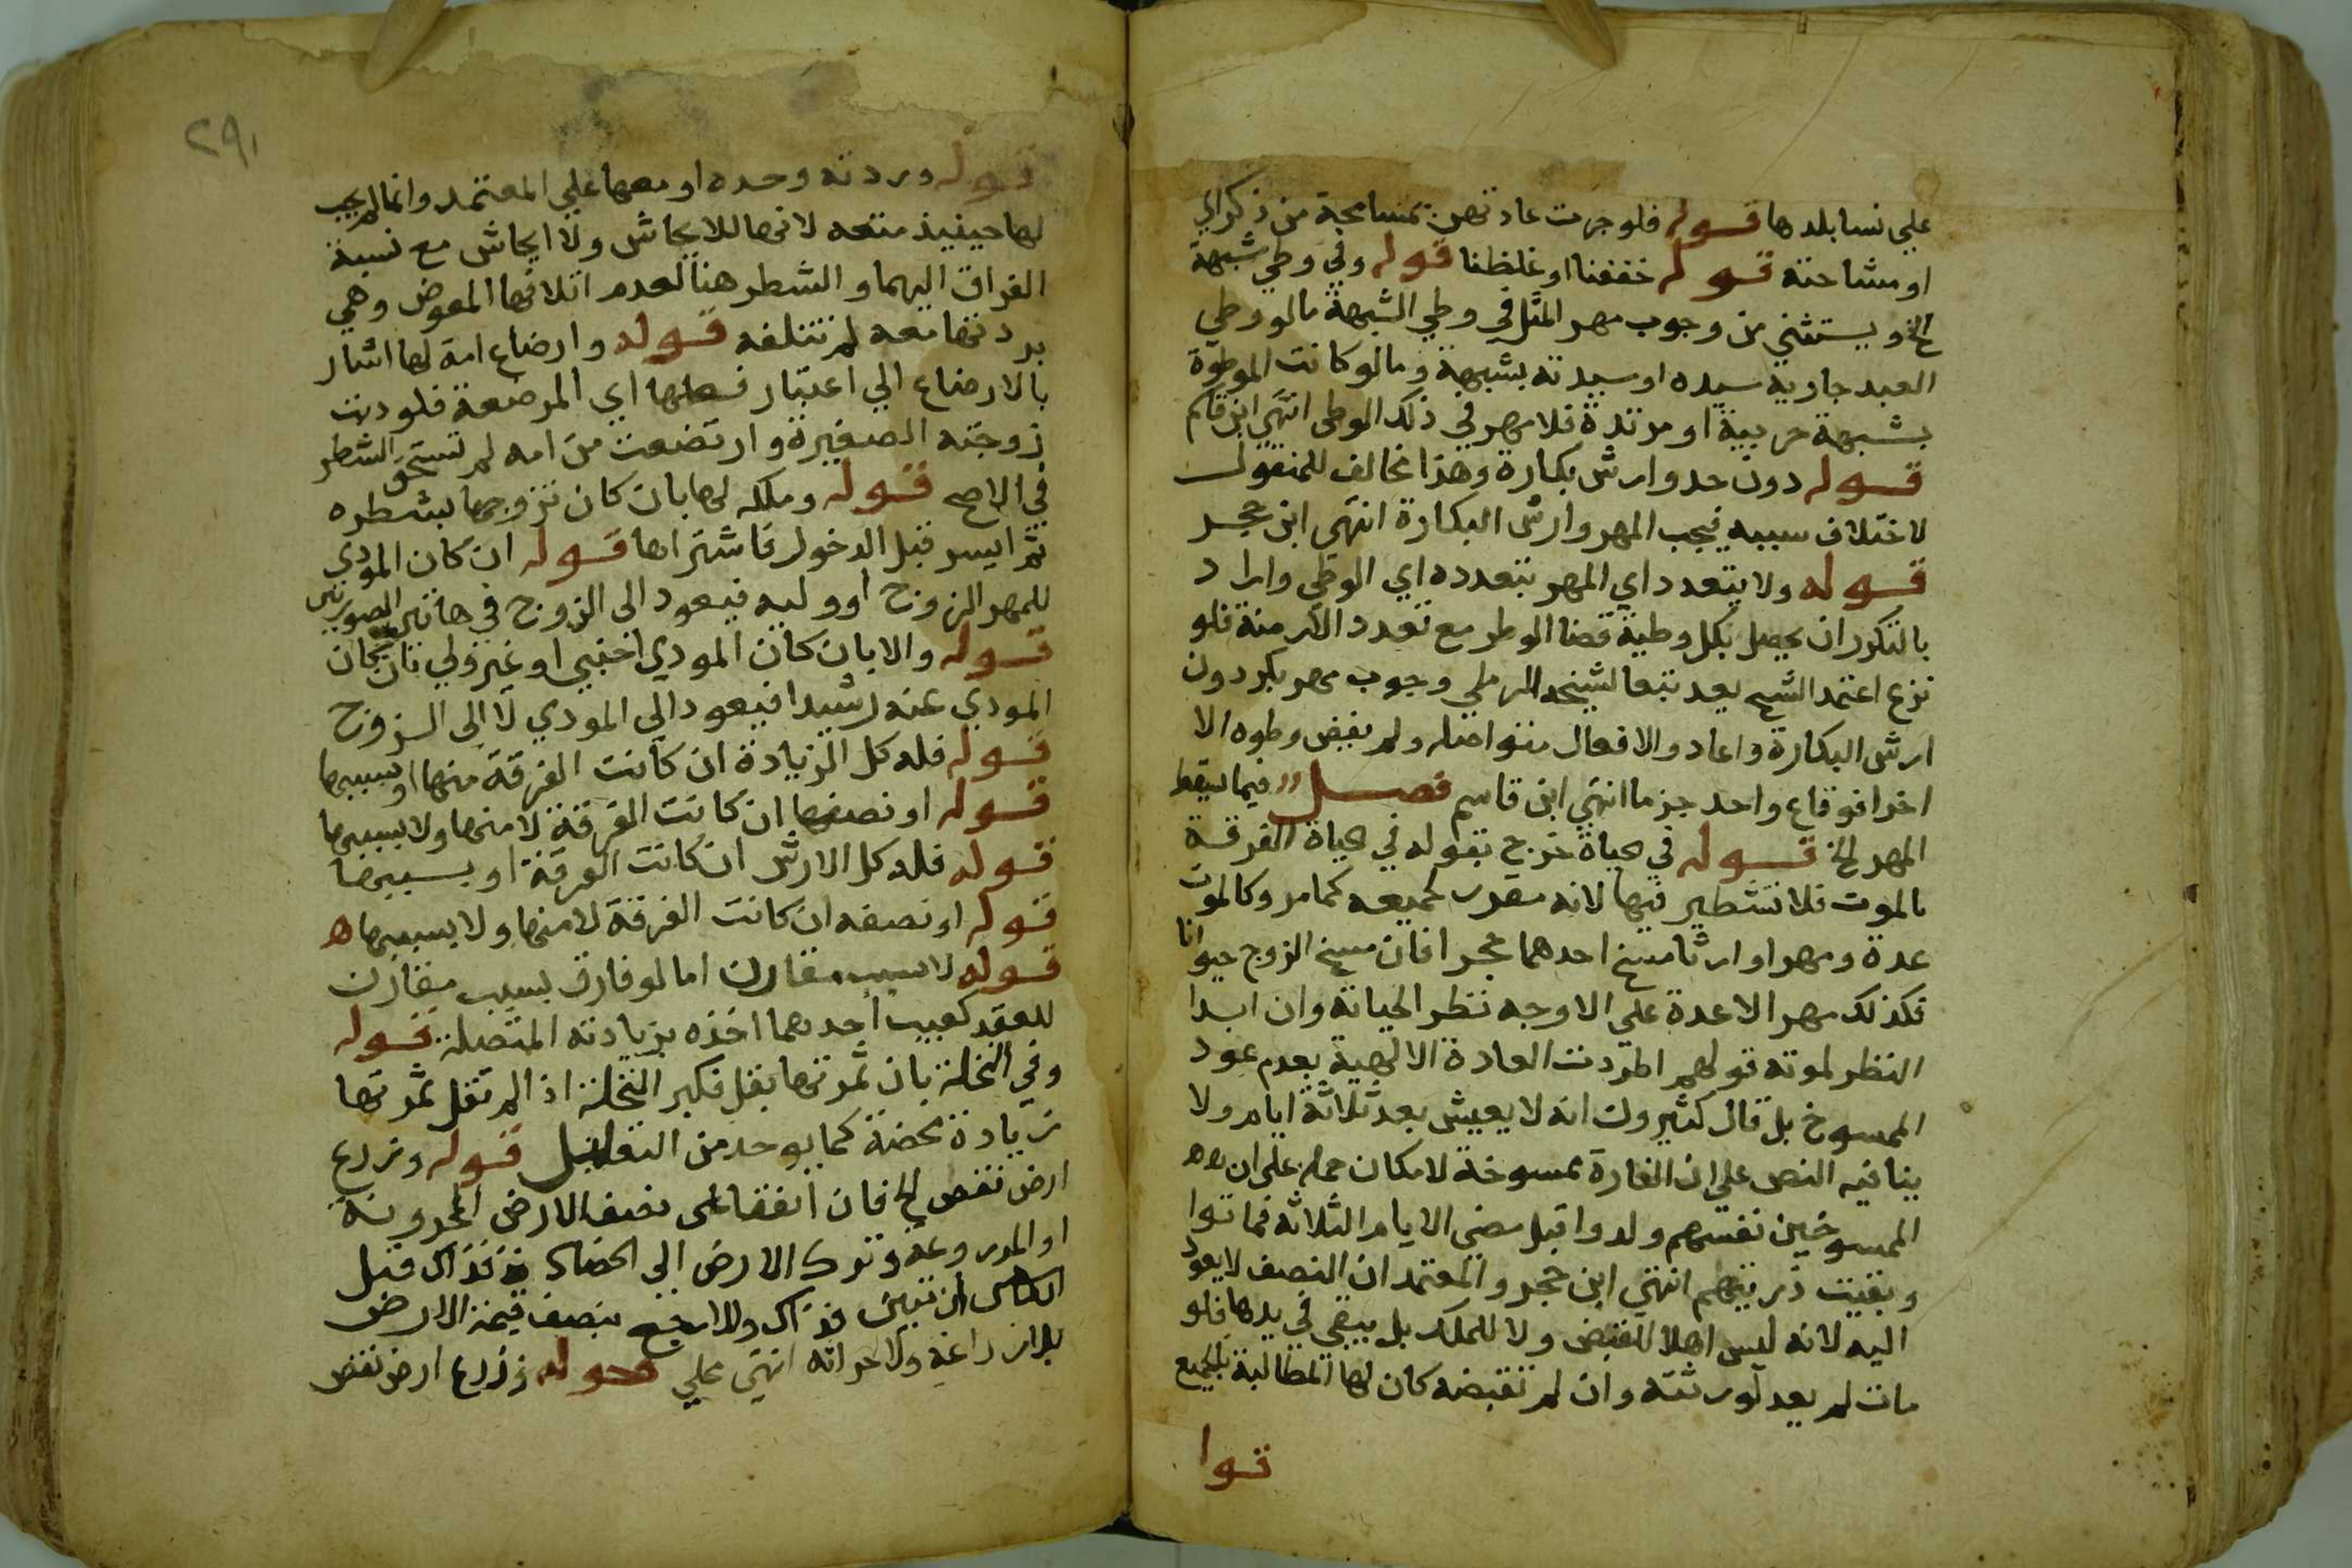 علي نسا بلدها قوله فلو جرت عادتهن بمسامحة من ذكر اي
او مشاحنة قوله خففنا او غلظنا قوله وفي وطي شبهة
الخ ويستثني من وجوب مهر المثل في وطي الشبهة مالو وطي
العبد جارية سيده او سيدته بشبهة ومالو كانت الموطؤة
بشبهة حربية او مرتدة فلا مهر في ذلك الوطي انتهي ابن قاسم
قوله دون حد وارش بكارة وهذا مخالف للمنقول
لاختلاف سببه فيجب المهر وارش البكارة انتهي ابن حجر
قوله ولا يتعدد اي المهر بتعدده اي الوطي واراد
بالتكرر ان يحصل بكل وطية قضا الوطر مع تعدد الازمنة فلو
نزع اعتمد الشيخ بعد تبعا لشيخه الرملي وجوب مهر بكر دون
ارش البكارة واعاد والافعال متواصله ولم يقض وطره الا
اخرا فوقاع واحد جزما انتهي ابن قاسم فصل فيما يسقط
المهر الخ قوله في حياة خرج بقوله في حياة الفرقة
بالموت فلا تشطير فيها لانه مقرر لجميعه كما مر وكالموت
عدة ومهرا وارثا مسخ احدهما حجرا فان مسخ الزوج حيوانا
فكذلك مهرا لا عدة علي الاوجه نظر الحياته وان ابدا
النظر لموته قولهم اطردت العادة الالهية بعدم عود
الممسوخ بل قال كثيرون انه لا يعيش بعد ثلاثة ايام ولا
ينافيه النص علي ان الفارة ممسوخة لامكان حمله علي ان
الممسوخين نفسهم ولدوا قبل مضي الايام الثلاثة فماتوا
وبقيت ذريتهم انتهي ابن حجر والمعتمد ان النصف لا يعود
اليه لانه ليس اهلا للقبض ولا للملك بل يبقي في يدها فلو
مات لم يعد لورثته وان لم تقبضه كان لها المطالبة بالجميع
قوا
٢٩١
قوله وردته وحده او معها علي المعتمد وانما لم يجب
لها حينيذ متعه لانها للايحاش ولا ايحاش مع نسبة
الفراق اليهما والشطر هنا لعدم اتلافها المعوض وهي
بردتها معه لم تتلفه قوله وارضاع امة لها اشار
بالارضاع الي اعتبار فعلها اي المرضعة فلو دبت
زوجته الصغيرة وارتضعت من امه لم تستحق الشطر
في الاصح قوله وملكه لها بان كان تزوجها بشطره
ثم ايسر قبل الدخول فاشتراها قوله ان كان المودي
للمهر الزوج او وليه فيعود الى الزوج في هاتين الصورتين
قوله والا بان كان المودي اجنبي او غير ولي بان كان
المودي عنه رشيدا فيعود الي المودي لا الى الزوج
قوله فله كل الزيادة ان كانت الفرقة منها او بسببها
قوله او نصفها ان كانت الفرقة لا منها ولا بسببها
قوله فله كل الارش ان كانت الفرقة او بسببها
قوله او نصفه ان كانت الفرقة لا منها ولا بسببها ه
قوله لا سبب مقارن اما لو فارق بسبب مقارن
للعقد كعيب احدهما اخذه بزيادته المتصلة قوله
وفي النخلة بان ثمرتها بقل فكبر النخلة اذا لم تقل ثمرتها
زيادة محضة كما يوخد من التعليل قوله وزرع
ارض نقص الخ فان اتفقا على نصف الارض المحروثة
او المزروعة وترك الارض الي الحصاد فذاك قبل
ان تبين فذاك والا رجع بنصف قيمة الارض
بلا زراعة ولا حراثه انتهي علي قوله وزرع ارض نقص